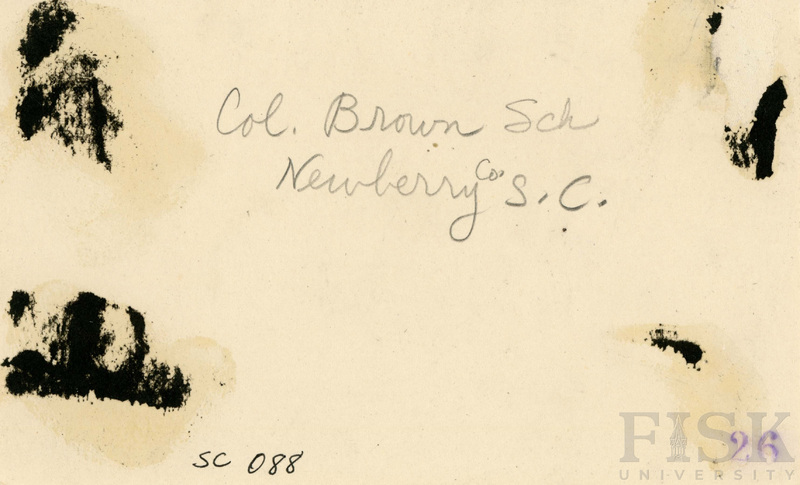 Col. Brown Sch
Newberry Co. S. C.
SC 088
26
FISK
UNIVERSITY